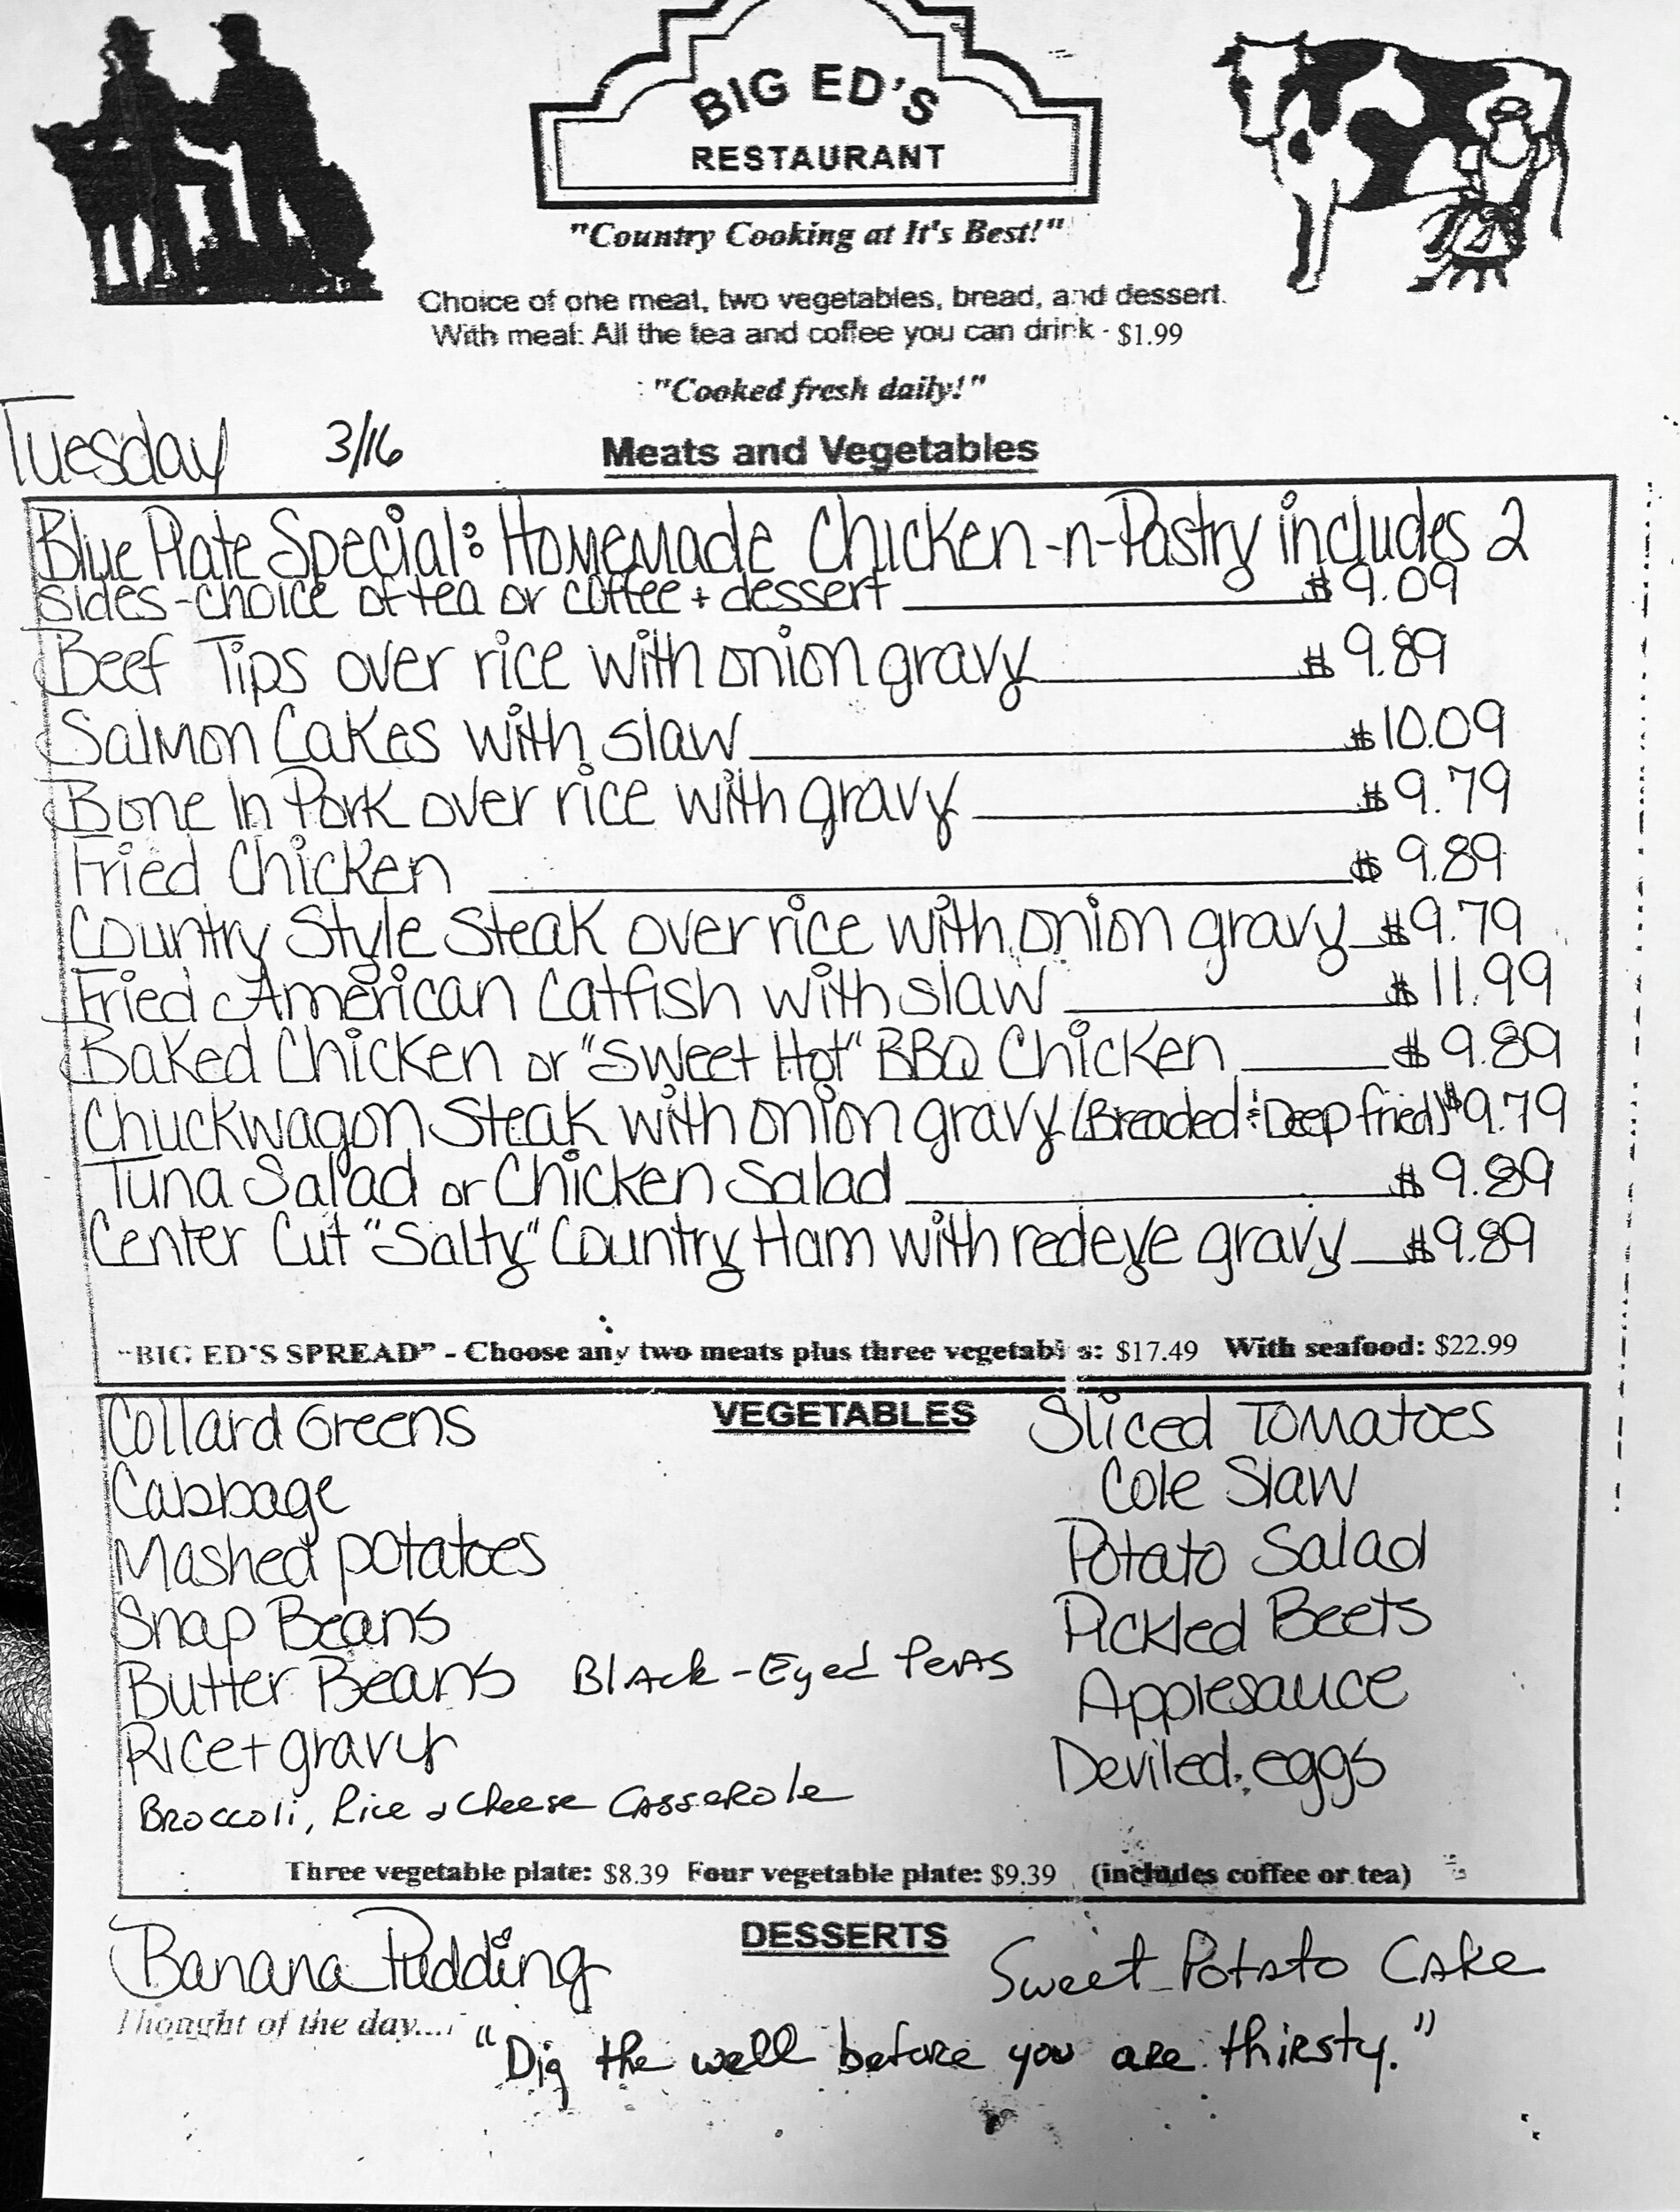 BIG ED'S
RESTAURANT
"Country Cooking at It's Best!"
Choice of one meat, two vegetables, bread, and dessert.
With meal: All the tea and coffee you can drink - $1.99
"Cooked fresh daily!"
Tuesday 3/16
Meats and Vegetables
Blue Plate Special: Homemade Chicken-n-Pastry includes 2
sides - choice of tea or coffee + dessert $9.09
Beef Tips over rice with onion gravy $9.89
Salmon Cakes with slaw $10.09
Bone In Pork over rice with gravy $9.79
Fried Chicken $9.89
Country Style Steak over rice with onion gravy $9.79
Fried American Catfish with slaw $11.99
Baked Chicken or "Sweet Hot" BBQ Chicken $9.89
Chuckwagon Steak with onion gravy (Breaded & Deep fried) $9.79
Tuna Salad or Chicken Salad $9.89
Center Cut "Salty" Country Ham with redeye gravy $9.89
"BIG ED'S SPREAD" - Choose any two meats plus three vegetabl s: $17.49 With seafood: $22.99
VEGETABLES
Collard Greens Sliced Tomatoes
Cabbage Cole Slaw
Mashed potatoes Potato Salad
Snap Beans Pickled Beets
Butter Beans Black-Eyed Peas Applesauce
Rice + gravy Deviled eggs
Broccoli, Rice & Cheese Casserole
Three vegetable plate: $8.39 Four vegetable plate: $9.39 (includes coffee or tea)
DESSERTS
Banana Pudding Sweet Potato Cake
Thought of the day....
"Dig the well before you are thirsty."